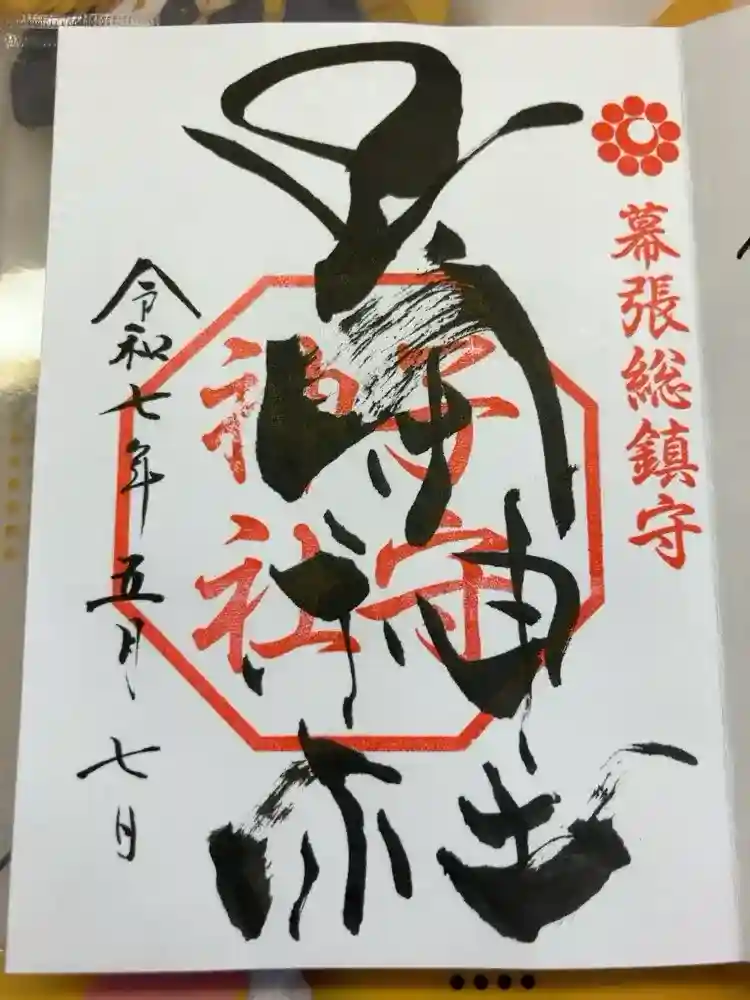 幕張総鎮守
子守神社
子守
神社
令和七年五月七日